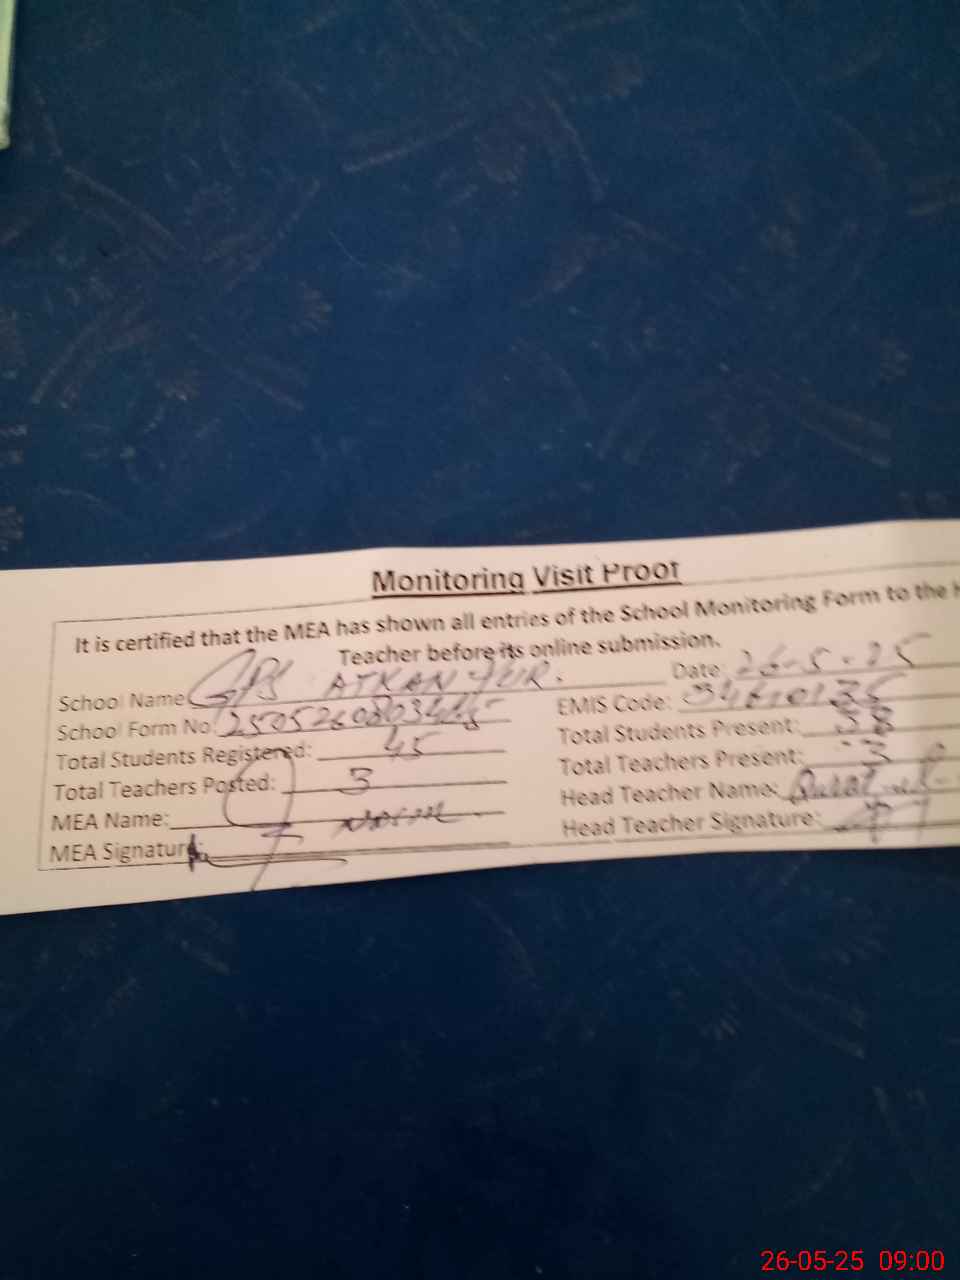 Monitoring Visit Proof
It is certified that the MEA has shown all entries of the School Monitoring Form to the H
Teacher before its online submission.
School Name GPS ATKAN
Date: 26-5-25
School Form No:
EMIS Code:
Total Students Registered: 45
Total Students Present: 38
Total Teachers Posted: 3
Total Teachers Present: 3
MEA Name:
Head Teacher Name:
MEA Signature:
Head Teacher Signature:
26-05-25 09:00